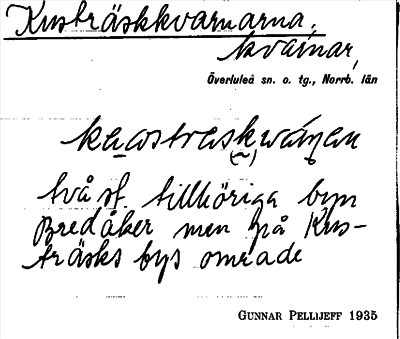 Kusträskkvarnarna,
kvarnar,
Överluleå sn. o. tg., Norrb. län
två st. tillhöriga byn
Bredåker men på Kus-
träsks bys område
GUNNAR PELLIJEFF 1935